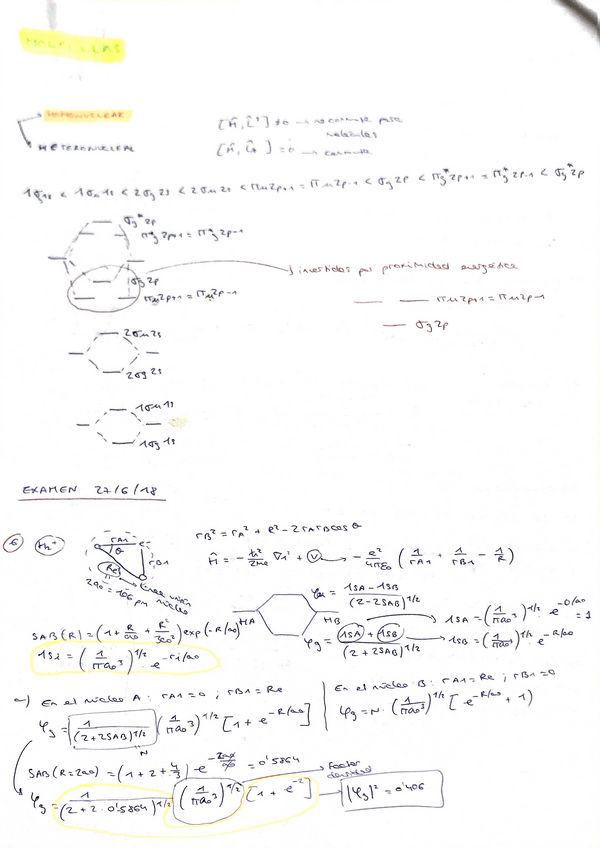 MOLÉCULAS
HOMONUCLEAR
HETERONUCLEAR
[Ĥ, L̂²] ≠ 0 → no conmuta para
moléculas
[Ĥ, L̂z] = 0 → conmuta
1σg1s < 1σu1s < 2σg2s < 2σu2s < πu2p+1 = πu2p-1 < σg2p < πg*2p+1 = πg*2p-1 < σg*2p
σg*2p
πg*2p+1 = πg*2p-1
σg2p
πu2p+1 = πu2p-1
invertidos por proximidad energética
πu2p+1 = πu2p-1
σg2p
2σu2s
2σg2s
1σu1s
1σg1s
EXAMEN 27/6/18
6 H₂⁺
rA1 e- θ rB1 Re
2a₀ = 106 pm
núcleos
rB² = rA² + R² - 2rArBcosθ
Ĥ = -ħ²/2me ∇1² + V → -e²/4πε₀ (1/rA1 + 1/rB1 - 1/R)
φu = 1SA - 1SB / (2-2SAB)^1/2
HA HB
φg = 1SA + 1SB / (2+2SAB)^1/2
1SA - (1/πa₀³)^1/2 · e^-0/a₀ = 1
1SB = (1/πa₀³)^1/2 · e^-R/a₀
SAB(R) = (1 + R/a₀ + R²/3a₀²) exp(-R/a₀)
1Si = (1/πa₀³)^1/2 · e^-ri/a₀
a) En el núcleo A: rA1 = 0 ; rB1 = Re
φg = 1/(2+2SAB)^1/2 (1/πa₀³)^1/2 [1 + e^-R/a₀]
N
En el núcleo B: rA1 = Re ; rB1 = 0
φg = N · (1/πa₀³)^1/2 [e^-R/a₀ + 1)
SAB(R=2a₀) = (1 + 2 + 4/3) e^-2a₀/a₀ = 0'5864
factor
densidad
φg = 1/(2+2·0'5864)^1/2 (1/πa₀³)^1/2 [1 + e^-2]
|φg|² = 0'406